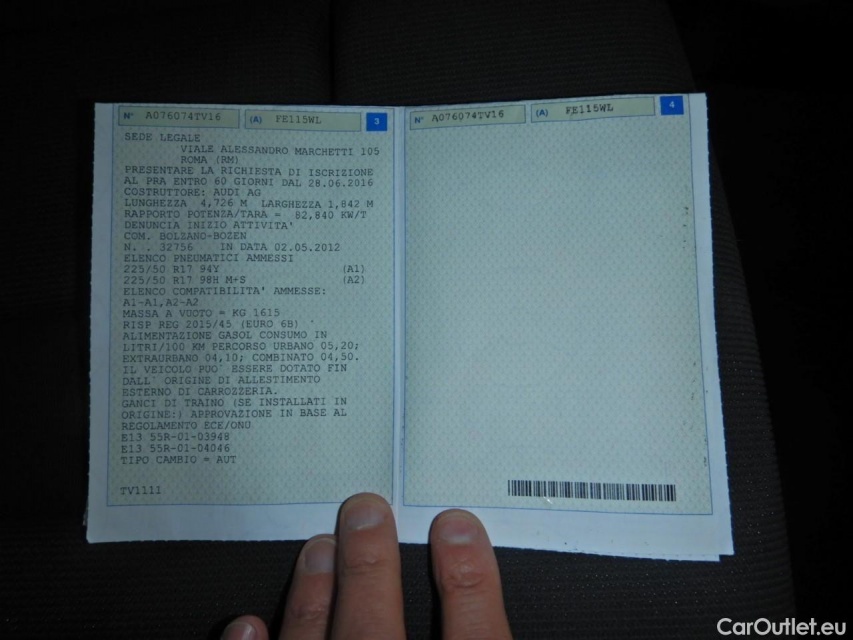 N° A076074TV16 (A) FE115WL 3
SEDE LEGALE
VIALE ALESSANDRO MARCHETTI 105
ROMA (RM)
PRESENTARE LA RICHIESTA DI ISCRIZIONE
AL PRA ENTRO 60 GIORNI DAL 28.06.2016
COSTRUTTORE: AUDI AG
LUNGHEZZA 4,726 M LARGHEZZA 1,842 M
RAPPORTO POTENZA/TARA = 82,840 KW/T
DENUNCIA INIZIO ATTIVITA'
COM. BOLZANO-BOZEN
N. . 32756 IN DATA 02.05.2012
ELENCO PNEUMATICI AMMESSI
225/50 R17 94Y (A1)
225/50 R17 98H M+S (A2)
ELENCO COMPATIBILITA' AMMESSE:
A1-A1,A2-A2
MASSA A VUOTO = KG 1615
RISP REG 2015/45 (EURO 6B)
ALIMENTAZIONE GASOL CONSUMO IN
LITRI/100 KM PERCORSO URBANO 05,20;
EXTRAURBANO 04,10; COMBINATO 04,50.
IL VEICOLO PUO' ESSERE DOTATO FIN
DALL' ORIGINE DI ALLESTIMENTO
ESTERNO DI CARROZZERIA.
GANCI DI TRAINO (SE INSTALLATI IN
ORIGINE:) APPROVAZIONE IN BASE AL
REGOLAMENTO ECE/ONU
E13 55R-01-03948
E13 55R-01-04046
TIPO CAMBIO = AUT
TV1111
N° A076074TV16 (A) FE115WL 4
CarOutlet.eu